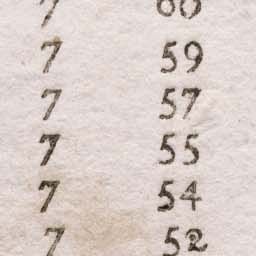 7 60
7 59
7 57
7 55
7 54
7 52